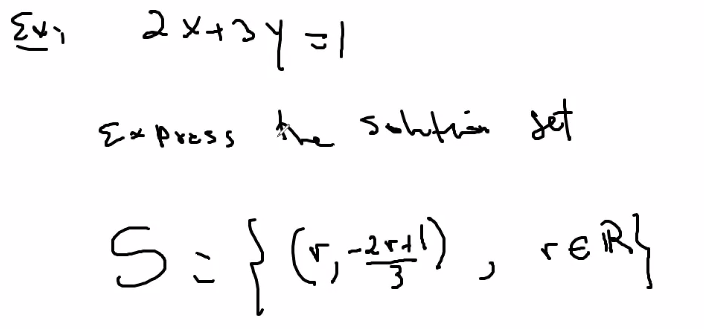 Ex; 2x+3y=1
Express the solution set
S = { (r, \frac{-2r+1}{3}) , r ∈ ℝ }